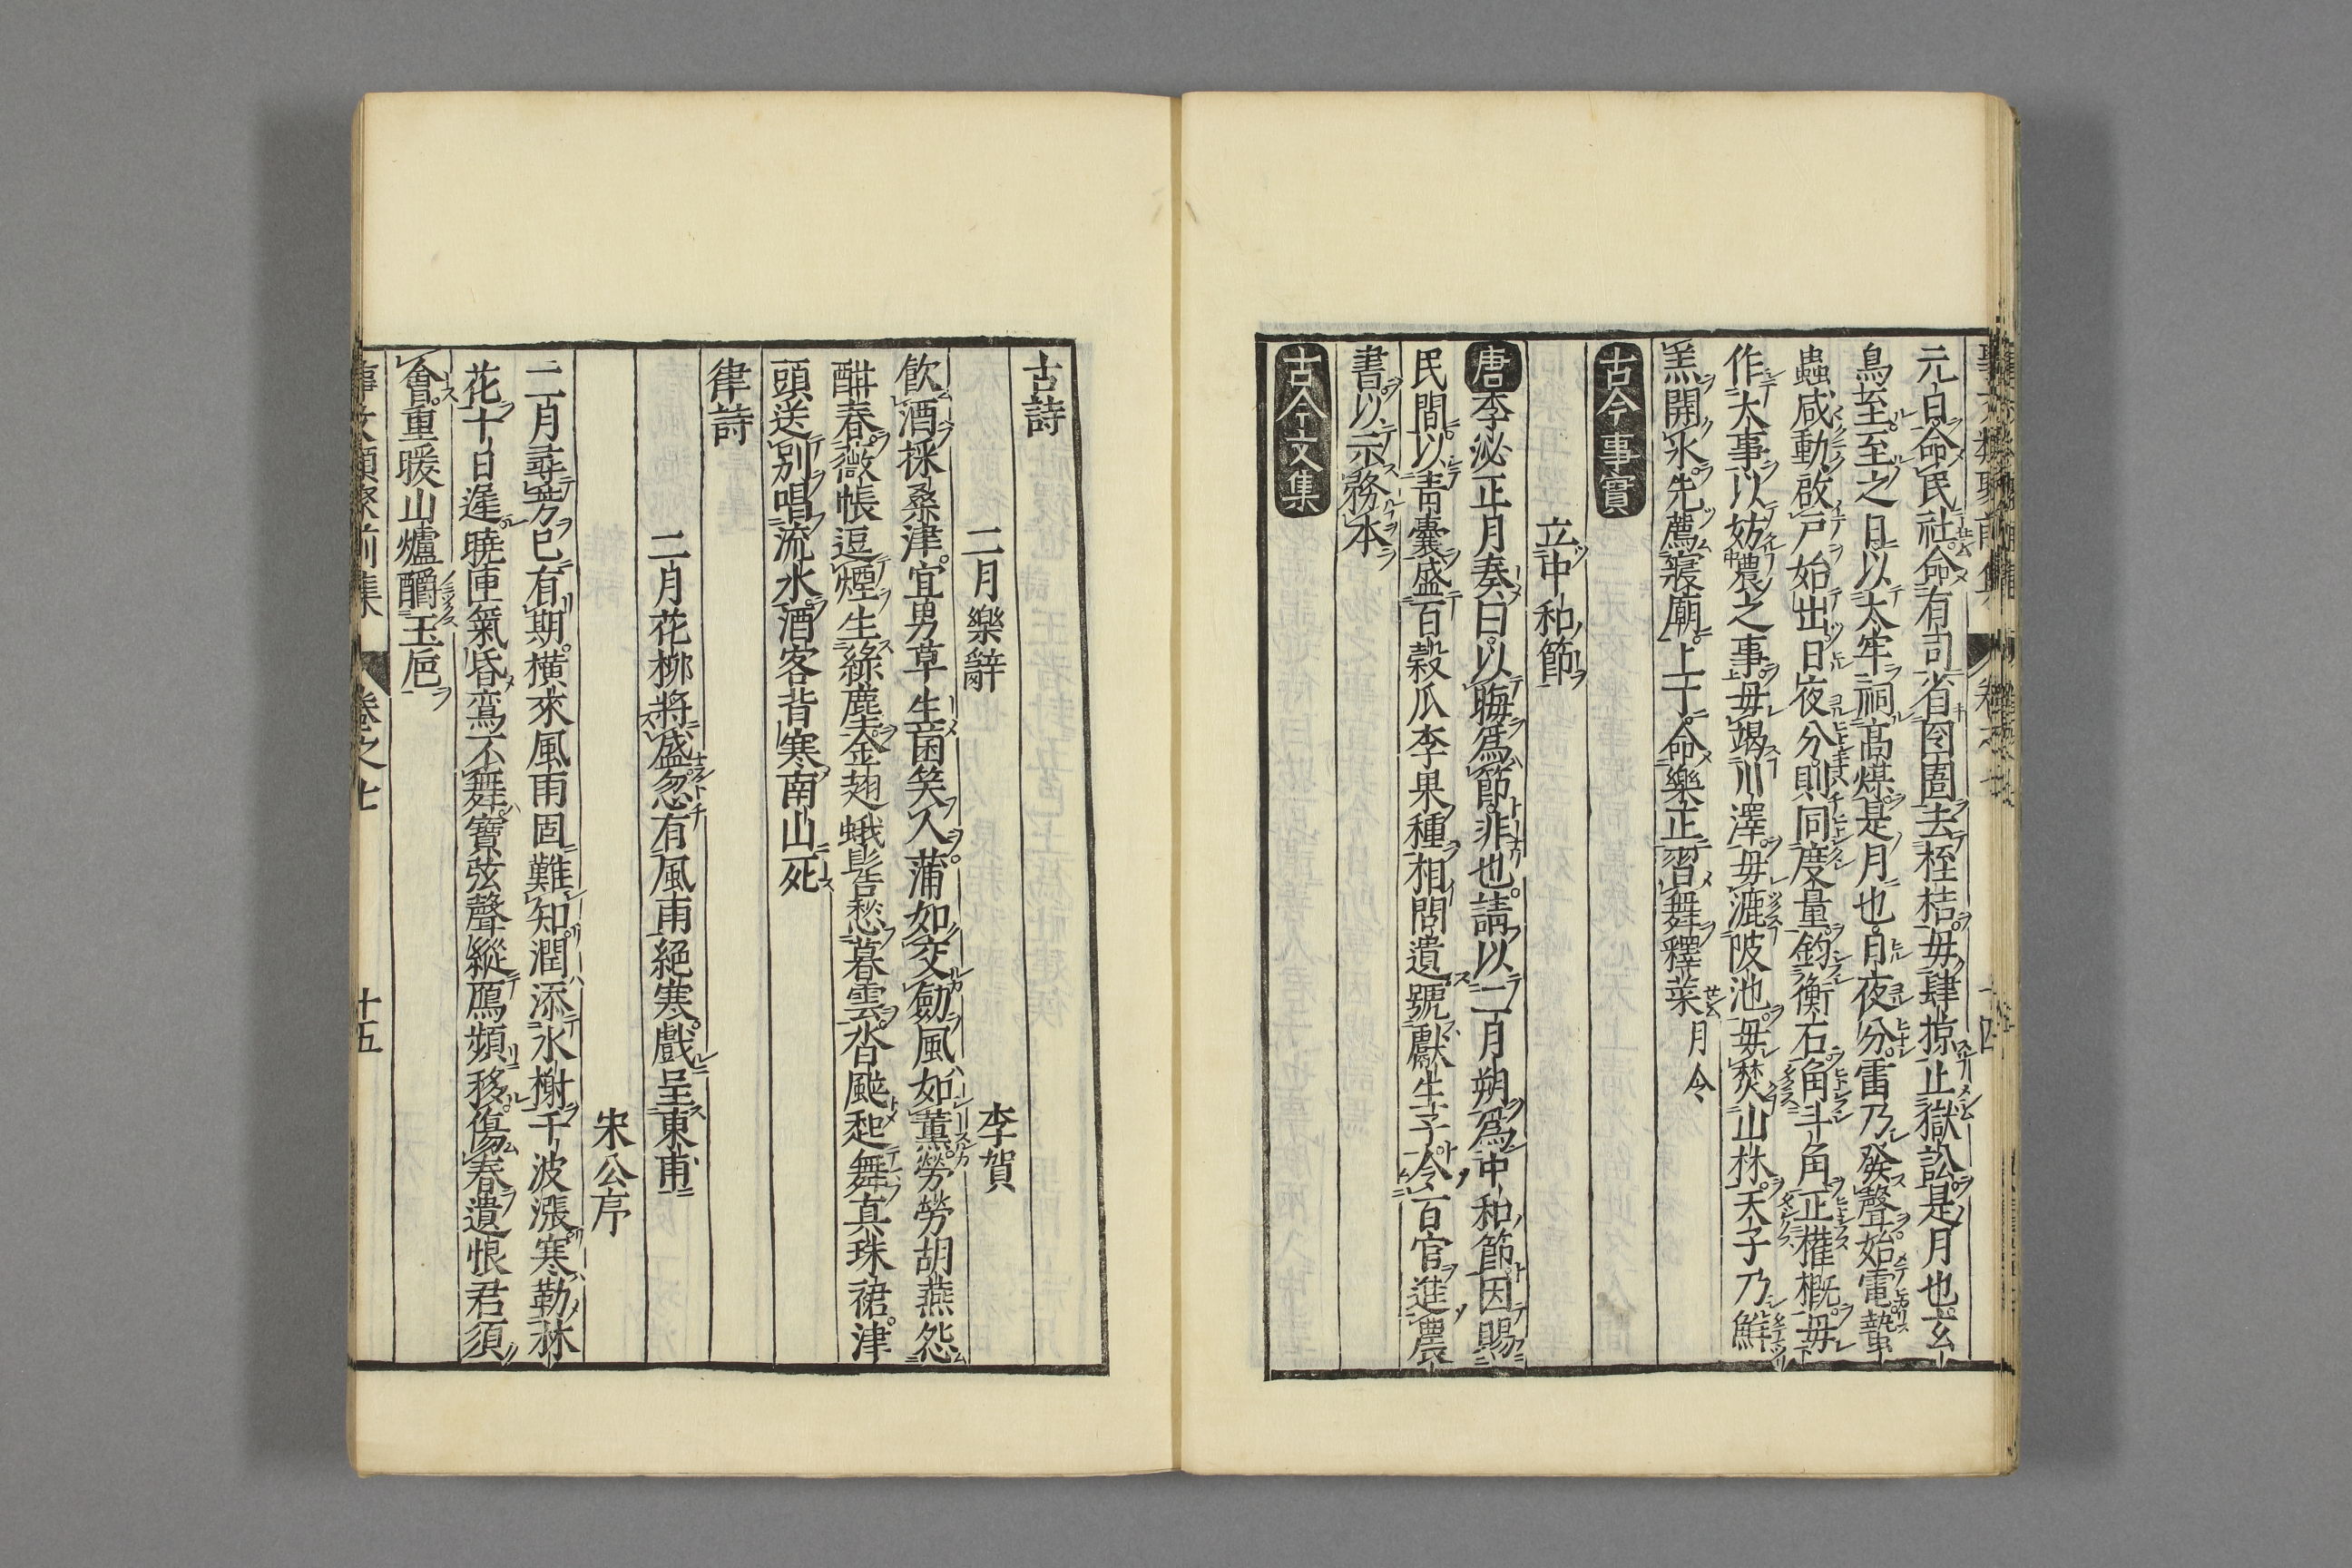 元日命民社命有司省囹圄去桎梏毋肆掠止獄訟是月也玄
鳥至至之日以太牢祠高禖是月也日夜分雷乃發聲始電蟄
蟲咸動啟戶始出日夜分則同度量鈞衡石角斗甬正權概毋
作大事以妨農之事毋竭川澤毋漉陂池毋焚山林天子乃鮮
羔開氷先薦寢廟上丁命樂正習舞釋菜月令
古今事實
立中和節
唐李泌正月奏曰以晦爲節非也請以二月朔爲中和節因賜
民間以青囊盛百穀瓜李果種相問遺號獻生子令百官進農
書以示務本
古今文集
古詩
二月樂辭 李賀
飲酒採桑津宜男草生菌笑入蒲如交劒風如薰勞勞胡燕怨
酣春薇帳逗煙生綠塵金翅蛾髻愁暮雲沓颯起舞真珠裙津
頭送別唱流水酒客背寒南山死
律詩
二月花柳將盛忽有風雨絕寒戲呈東甫
宋公序
二月尋芳已有期橫來風雨固難知潤添水榭千波漲寒勒林
花十日遲曉匣氣昏鸞不舞寶弦聲縱鴈頻移傷春遣恨君須
會重暖山爐釂玉巵
事文類聚前集 卷之七 十五